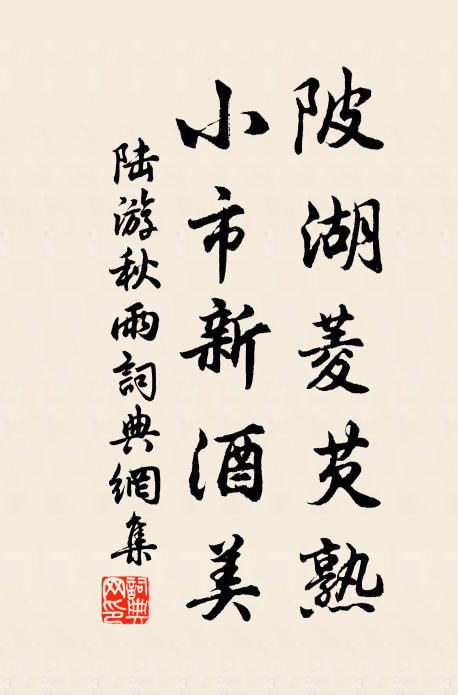 陂湖菱芡熟
小市新酒美
陆游秋雨詞典網集
詞典
网印